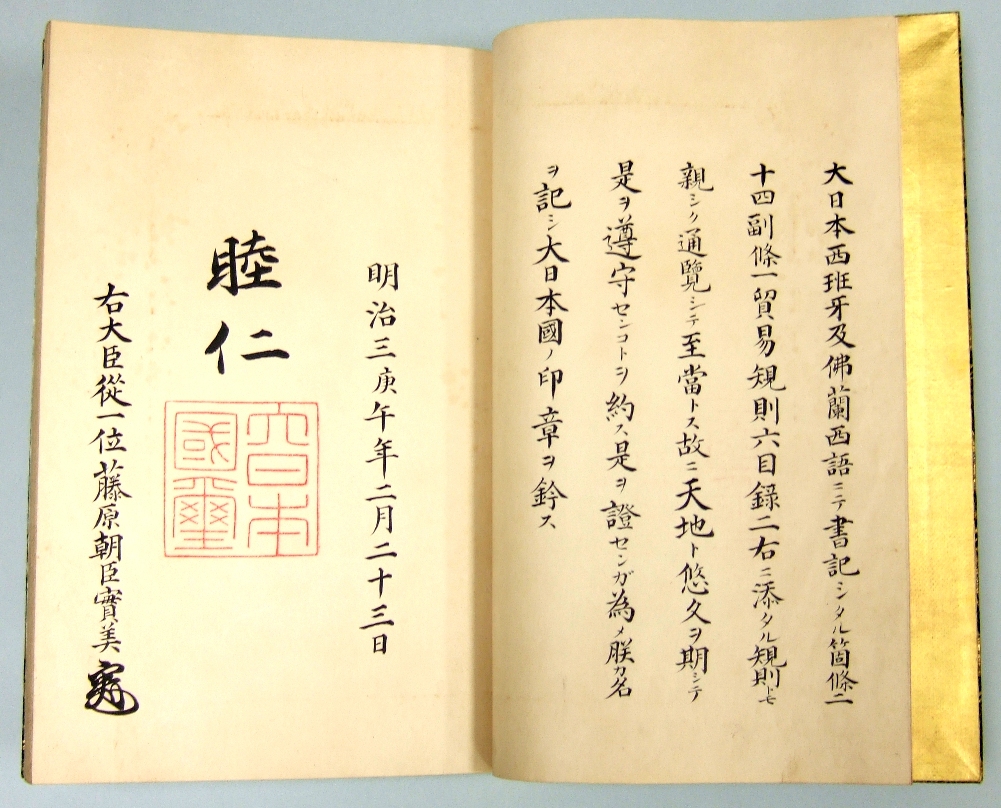 大日本西班牙及佛蘭西語ニテ書記シタル箇條二
十四副條一貿易規則六目録二右ニ添タル規則トモ
親シク通覧シテ至當トス故ニ天地ト悠久ヲ期シテ
是ヲ遵守センコトヲ約ス是ヲ證センガ為メ朕カ名
ヲ記シ大日本國ノ印章ヲ鈐ス
明治三庚午年二月二十三日
睦仁
大日本國璽
右大臣從一位藤原朝臣實美